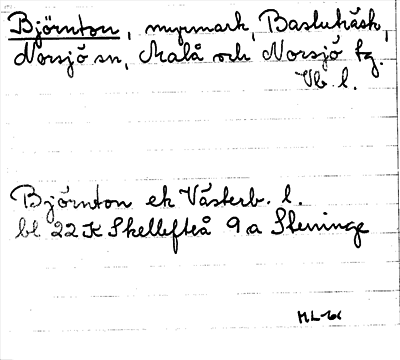 Björnton, myrmark, Basluträsk,
Norsjö sn, Malå och Norsjö tg.
Vb. l.
Björnton ek Västerb. l.
bl 22 K Skellefteå 9 a